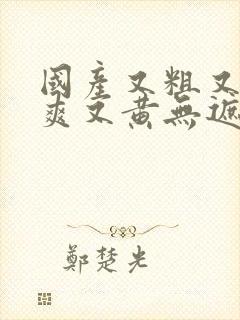 國產又粗又
爽又黃無遮
鄭楚光